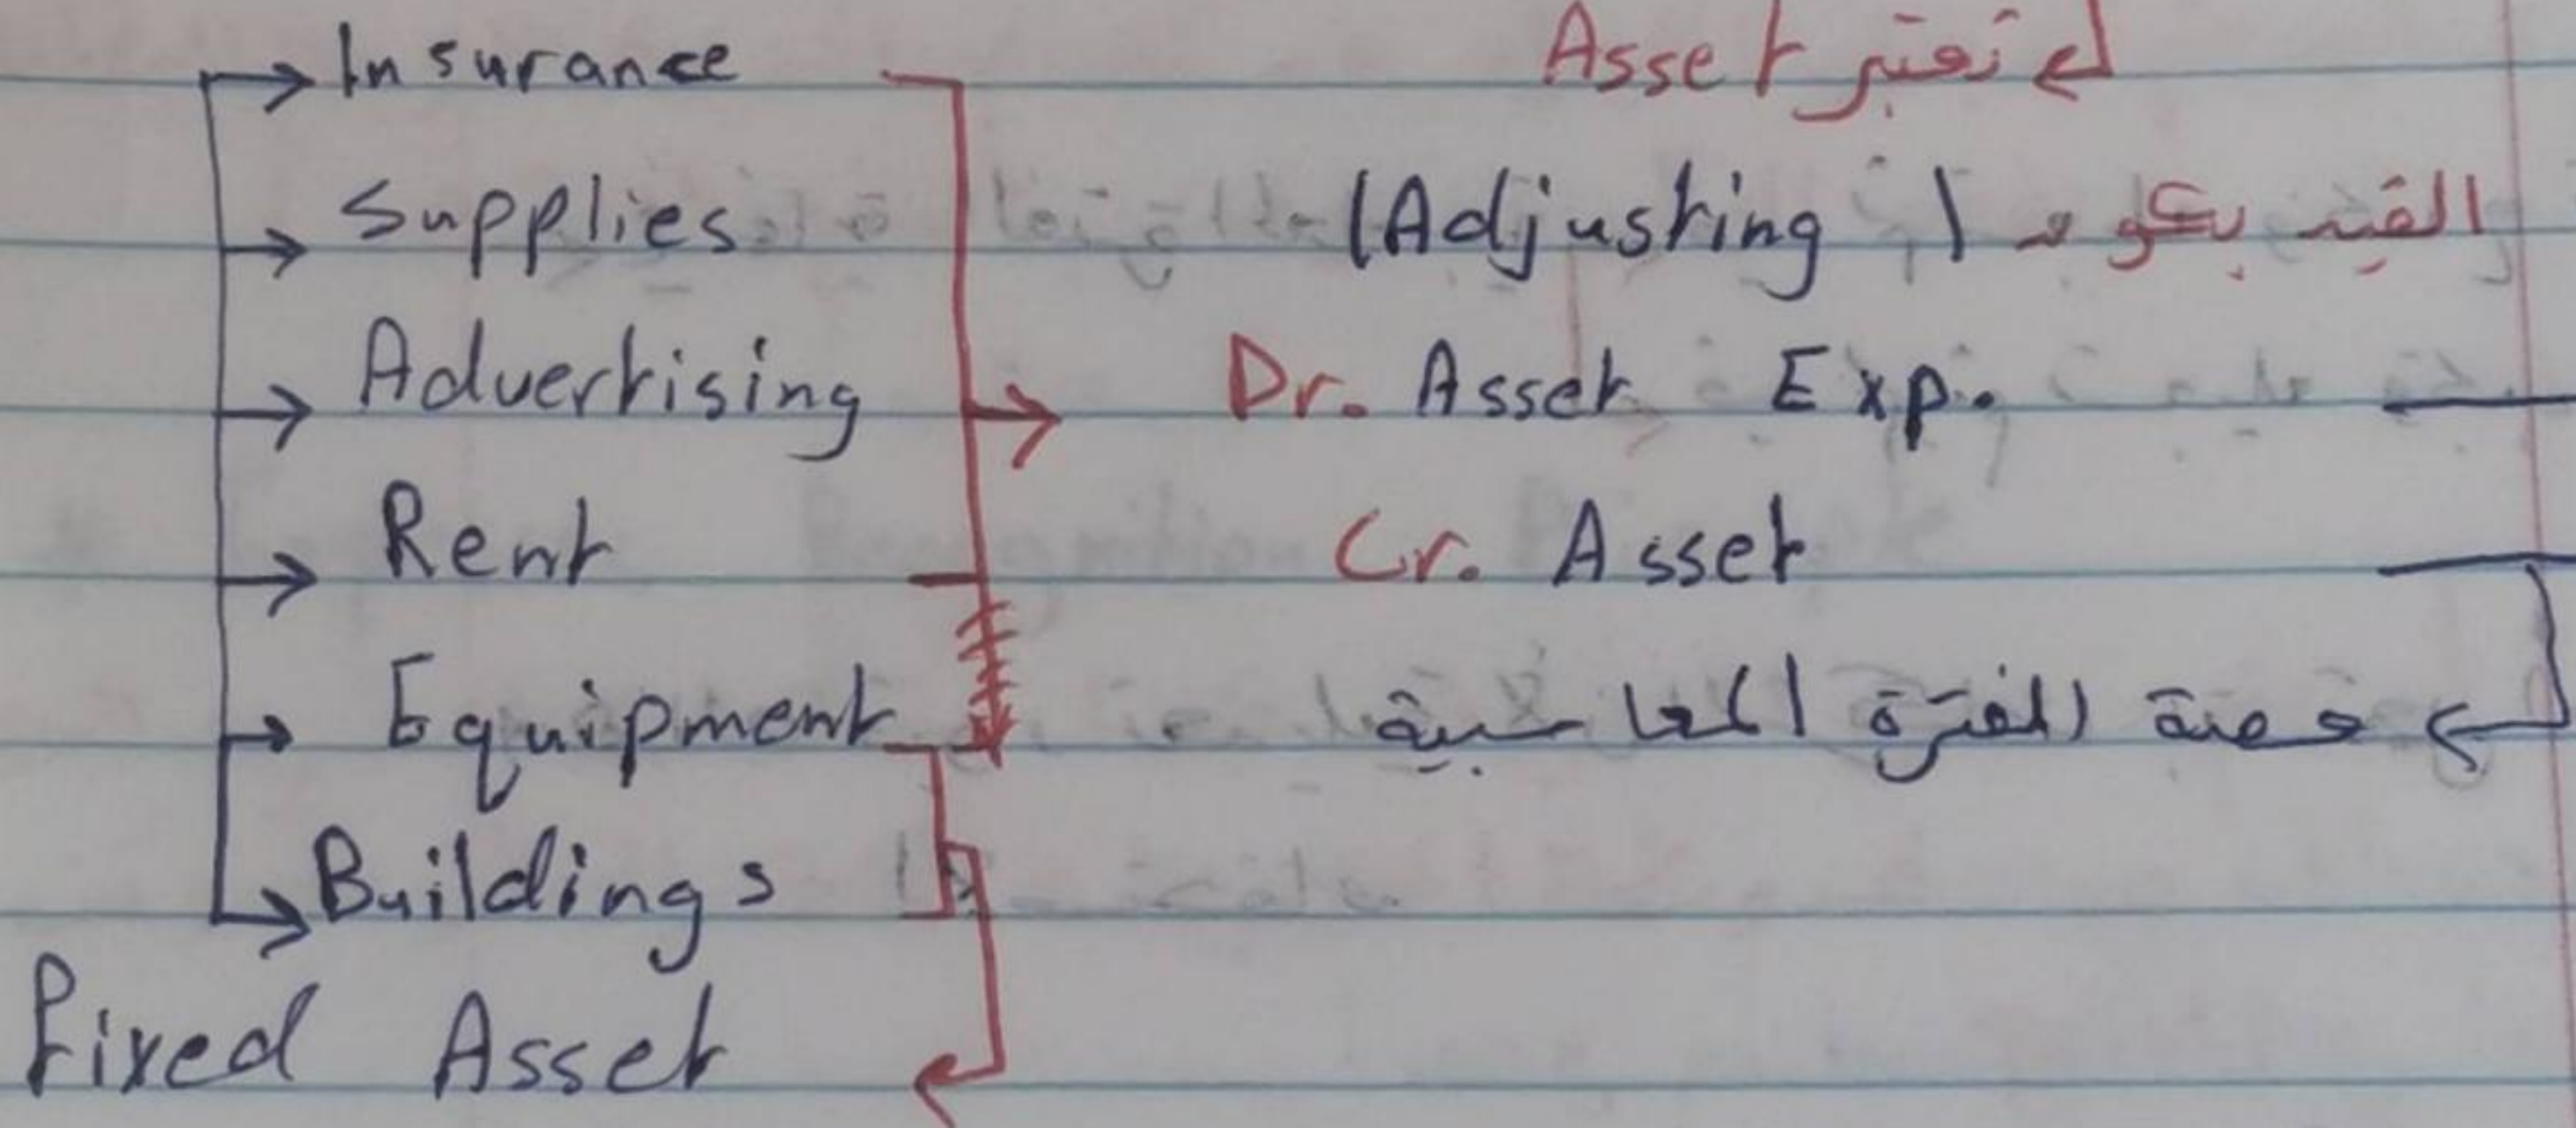 Insurance
Supplies
Advertising
Rent
Equipment
Buildings
Fixed Asset
تعتبر Asset
القيد بكون (Adjusting)
Dr. Asset Exp.
Cr. Asset
حصة الفترة المحاسبية